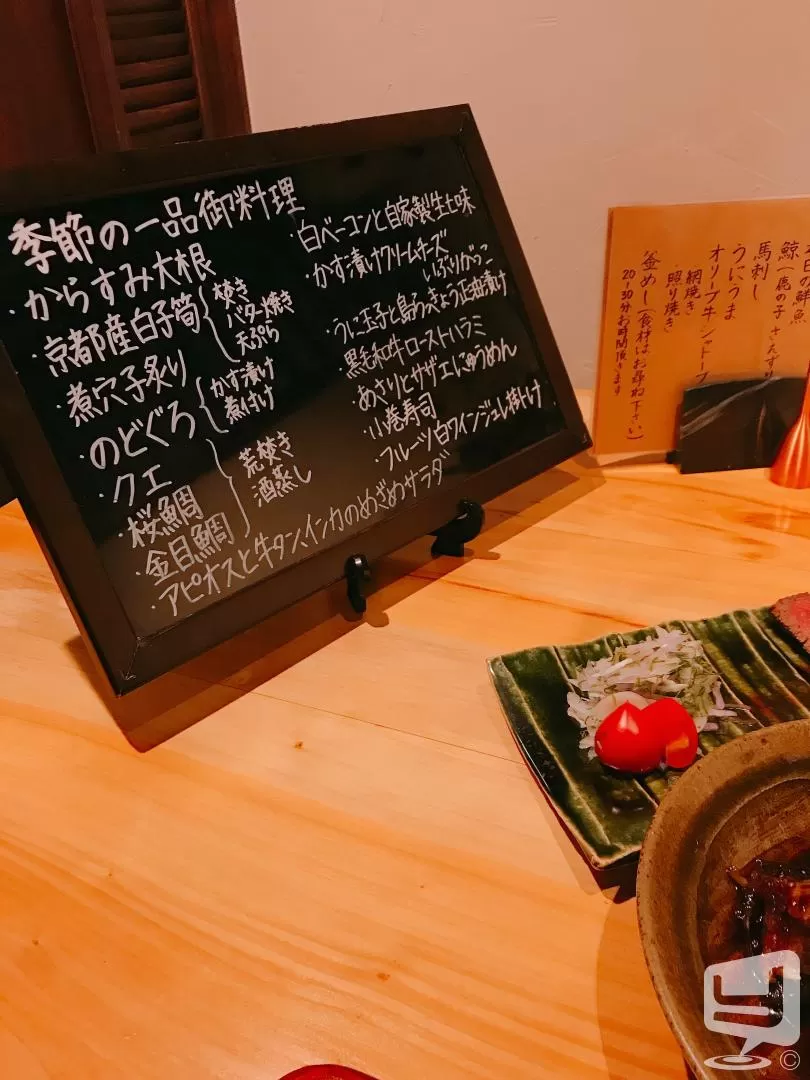 季節の一品御料理
・からすみ大根
・京都産白子筍
焚き
バター焼き
天ぷら
・煮穴子炙り
・のどぐろ
かす漬け
煮付け
・クエ
・桜鯛
・金目鯛
荒焚き
酒蒸し
・アピオスと牛タン、インカのめざめサラダ
・白ベーコンと自家製生七味
・かす漬けクリームチーズ
いぶりがっこ
・うに玉子と島らっきょう正油漬け
・黒毛和牛ローストハラミ
・あさりとサザエにゅうめん
・小巻寿司
・フルーツ白ワインジュレ掛け
日の鮮魚
鯨(鹿の子 さえずり
馬刺し
うにうま
オリーブ牛シャトーブ
網焼き
照り焼き
釜めし(食材はお尋ね下さい)
20~30分お時間頂きます
©